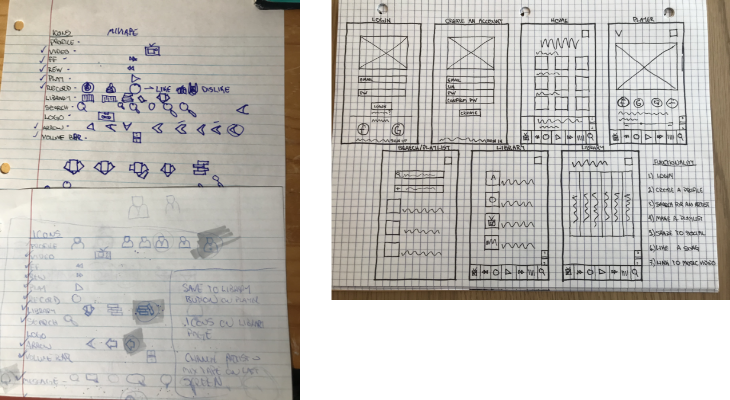 ICONS MIXTAPE
PROFILE -
VIDEO -
FF -
REW -
PLAY -
RECORD - → LIKE DISLIKE
LIBRARY -
SEARCH -
LOGO -
ARROW -
VOLUME BAR -
ICONS
PROFILE
VIDEO
FF
REW
RECORD
LIBRARY
SEARCH
LOGO
ARROW
VOLUME BAR
SAVE TO LIBRARY
BUTTON ON
ICONS ON LIBRARY
LOGIN
EMAIL
PW
LOGIN
F G
SIGN UP
CREATE AN ACCOUNT
EMAIL
PW
CONFIRM PW
CREATE
SIGN IN
HOME
PLAYER
SEARCH/PLAYLIST
LIBRARY
A
LIBRARY
FUNCTIONALITY
1) LOGIN
2) CREATE A PROFILE
3) SEARCH FOR AN ARTIST
4) MAKE A PLAYLIST
5) SHARE TO SOCIAL
6) LIKE A SONG
7) LINK TO MUSIC VIDEO